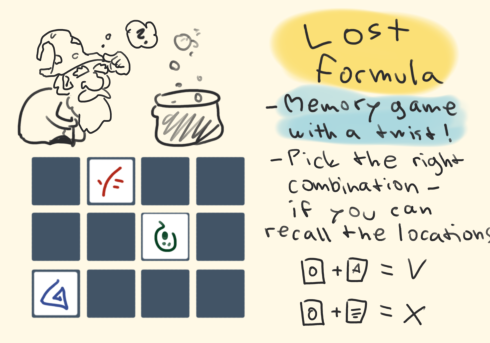 ?
Lost
Formula
- Memory game
with a twist!
- Pick the right
combination -
if you can
recall the locations
O + A = V
O + = X